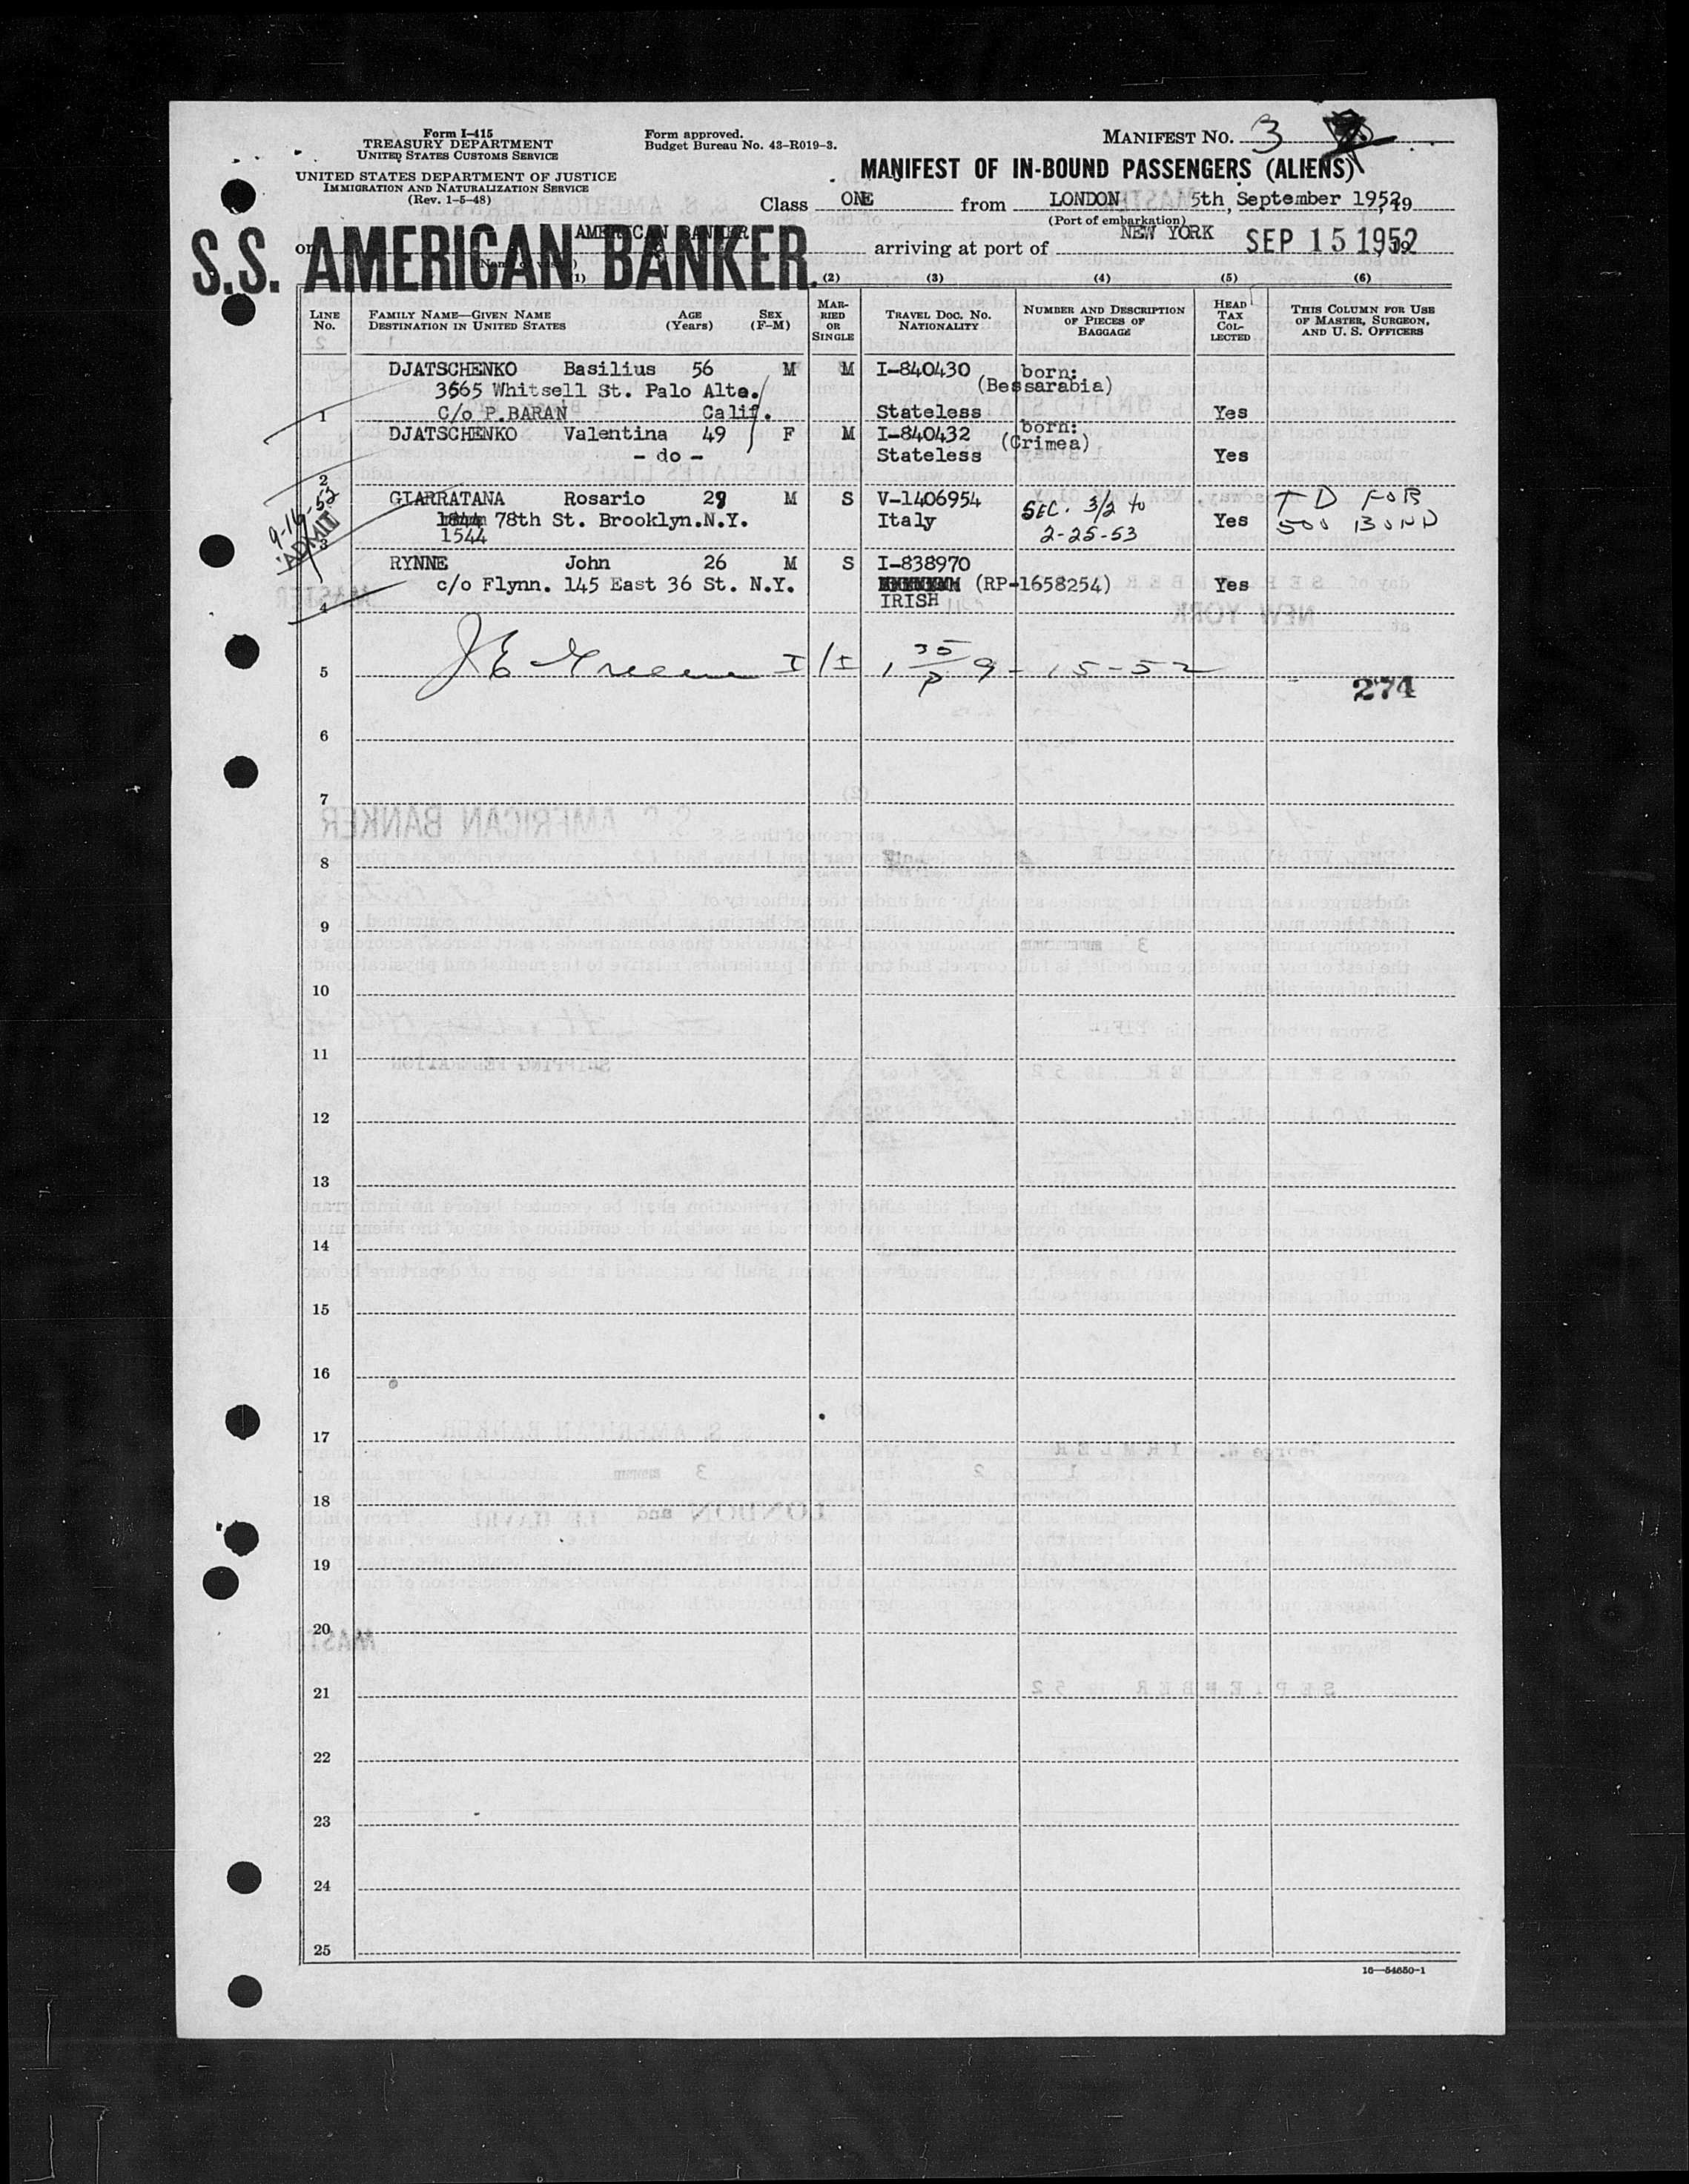 Form I-415
TREASURY DEPARTMENT
UNITED STATES CUSTOMS SERVICE
UNITED STATES DEPARTMENT OF JUSTICE
IMMIGRATION AND NATURALIZATION SERVICE
(Rev. 1-5-48)
Form approved.
Budget Bureau No. 43-R019-3.
MANIFEST NO. 3
MANIFEST OF IN-BOUND PASSENGERS (ALIENS)
Class ONE from LONDON 5th, September 1952, 19
(Port of embarkation)
on AMERICAN BANKER arriving at port of NEW YORK SEP 15 1952
S.S. AMERICAN BANKER.
(1) (2) (3) (4) (5) (6)
LINE No.
FAMILY NAME—GIVEN NAME
DESTINATION IN UNITED STATES
AGE (Years)
SEX (F-M)
MARRIED OR SINGLE
TRAVEL DOC. NO. NATIONALITY
NUMBER AND DESCRIPTION OF PIECES OF BAGGAGE
HEAD TAX COLLECTED
THIS COLUMN FOR USE OF MASTER, SURGEON, AND U. S. OFFICERS
DJATSCHENKO Basilius 56 M M I-840430 born:
3665 Whitsell St. Palo Alto. (Bessarabia)
1 C/o P.BARAN Calif. Stateless Yes
DJATSCHENKO Valentina 49 F M I-840432 born: (Crimea)
- do - Stateless Yes
2
GIARRATANA Rosario 29 M S V-1406954 SEC. 3/2 to TD FOR
78th St. Brooklyn.N.Y. Italy 2-25-53 Yes 500 BOND
3 1544
9-16-52
ADMIT
RYNNE John 26 M S I-838970
c/o Flynn. 145 East 36 St. N.Y. (RP-1658254) Yes
4 IRISH
5 J E Greene I/I 1 35/P 9-15-52
274
6
7
8
9
10
11
12
13
14
15
16
17
18
19
20
21
22
23
24
25
16—54650-1